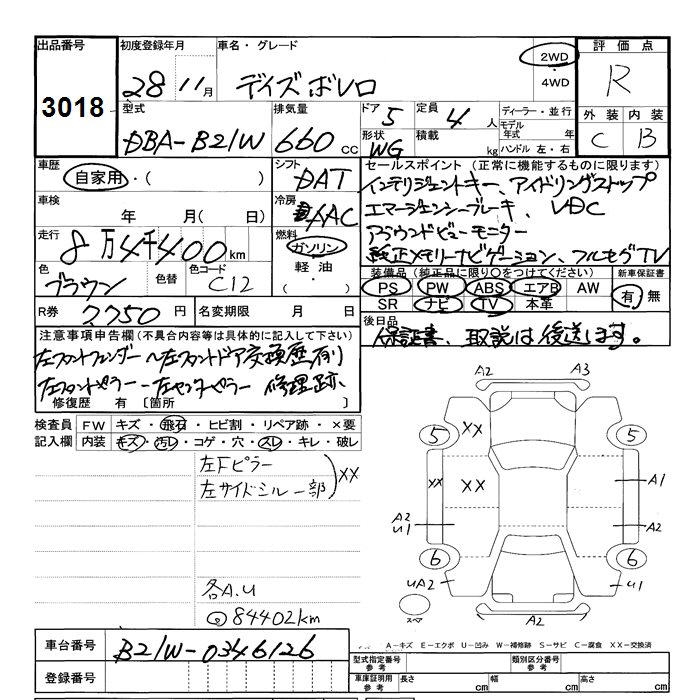 出品番号
3018
初度登録年月
28 11月
車名・グレード
デイズボレロ
2WD
・
4WD
評価点
R
型式
DBA-B21W
排気量
660 cc
ドア 5
定員 4 人
形状 WG
積載 kg
ディーラー・並行
モデル年式 年
ハンドル 左・右
外装 内装
C B
車歴
自家用・( )
シフト
DAT
セールスポイント(正常に機能するものに限ります)
インテリジェントキー、アイドリングストップ
エマージェンシーブレーキ、VDC
アラウンドビューモニター
純正メモリーナビゲーション、フルセグTV
車検
年 月( 日)
冷房
AAC
走行
8万4千400km
燃料
ガソリン
軽油
( )
色
ブラウン
色替
色コード
C12
装備品(純正品に限り○をつけてください)
PS PW ABS エアB AW
SR ナビ TV 本革
新車保証書
有・無
R券 7750円
名変期限 月 日
後日品
保証書、取説は後送します。
注意事項申告欄(不具合内容等は具体的に記入して下さい)
左フロントフェンダー〜左フロントドア交換歴有り
左フロントピラー〜左センターピラー 修理跡、
修復歴 有〔箇所 〕
検査員記入欄
FW キズ・飛石・ヒビ割・リペア跡・×要
内装 キズ・汚レ・コゲ・穴・スレ・キレ・破レ
左Fピラー
左サイドシル一部
XX
各A.U
84402km
A2 A3
5 XX 5
XX XX A1
A2 A2
U1
6 6
UA2 U1
スペア
A2
A-キズ E-エクボ U-凹み W-補修跡 S-サビ C-腐食 XX-交換済
車台番号
B21W-0346126
登録番号
型式指定番号
参考
類別区分番号
参考
車庫証明用
参考
長さ cm
幅 cm
高さ cm